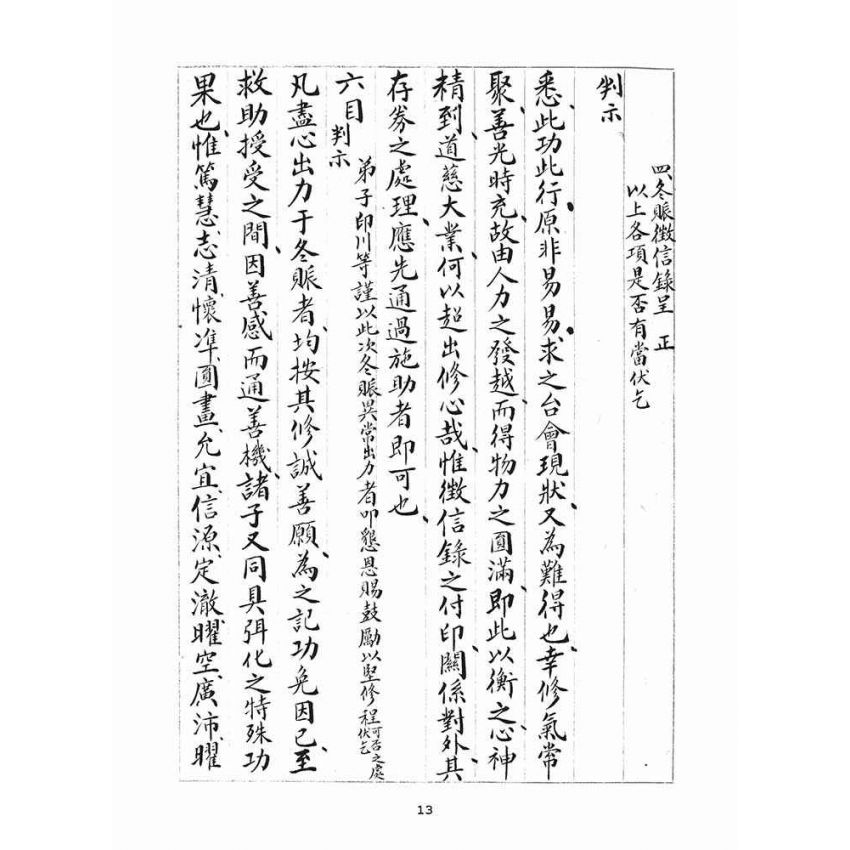 四、冬賑徵信錄呈　正
以上各項是否有當伏乞
判示
悉、此功此行、原非易易、求之台會現狀、又為難得也、幸修氣常
聚、善光時充、故由人力之發越、而得物力之圓滿、即此以衡之、心神
精到、道慈大業、何以超出修心哉、惟徵信錄之付印、關係對外、其
存券之處理、應先通過施助者即可也、
六目判示
弟子印川等謹以此次冬賑異常出力者叩懇恩賜鼓勵以堅修程可否之處伏乞
凡盡心出力于冬賑者、均按其修誠善願、為之記功免因已、至
救助授受之間、因善感而通善機、諸子又同具弭化之特殊功
果也、惟篤慧志清、懷準圓晝、允宜信源、定澈曜空、廣沛曜
13